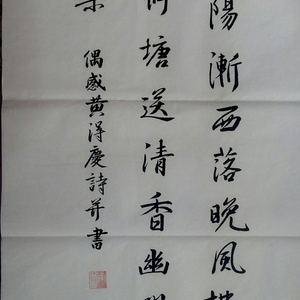 陽漸西落晚風
荷塘送清香幽
偶感黃得慶詩并書